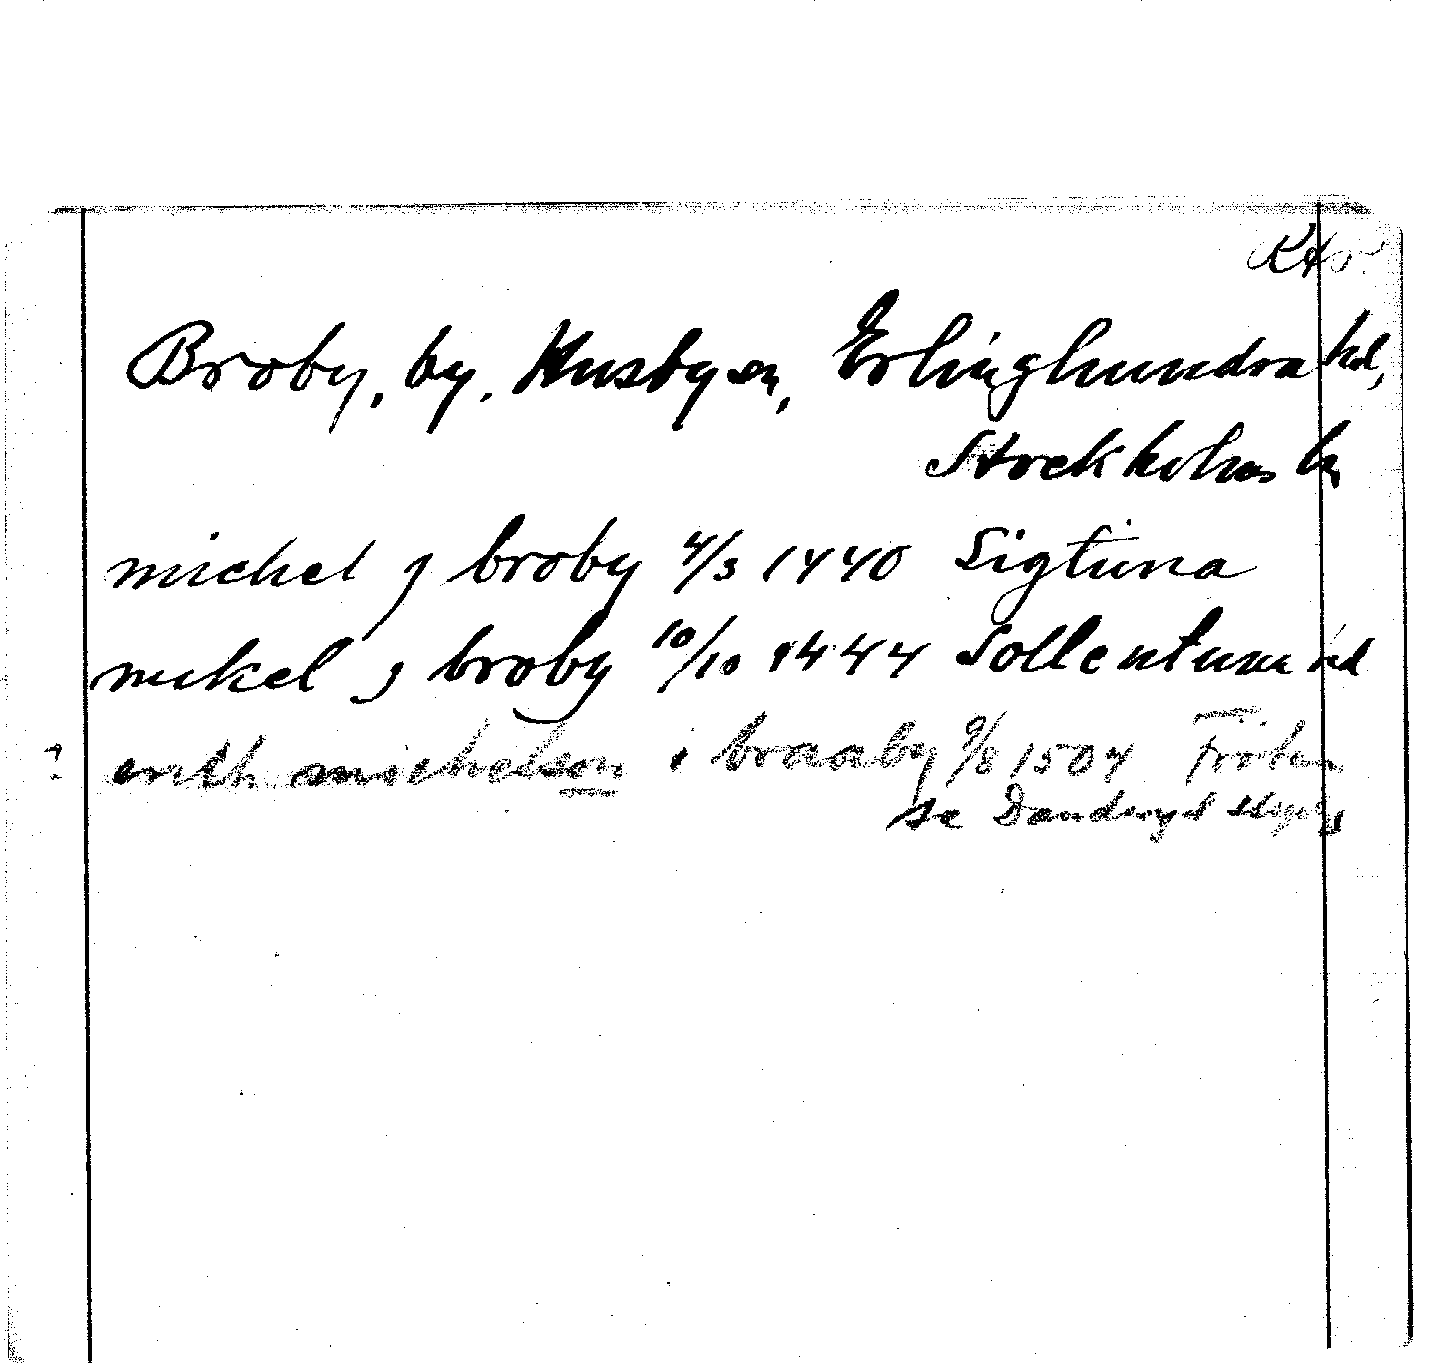 Broby, by, Husby sn, Erlinghundra hd,
Stockholms l.
michel j broby 4/3 1440 Sigtuna
mikel j broby 10/10 1444 Sollentuna hd
? erith michelson i braaby 9/8 1504
se Danderyds